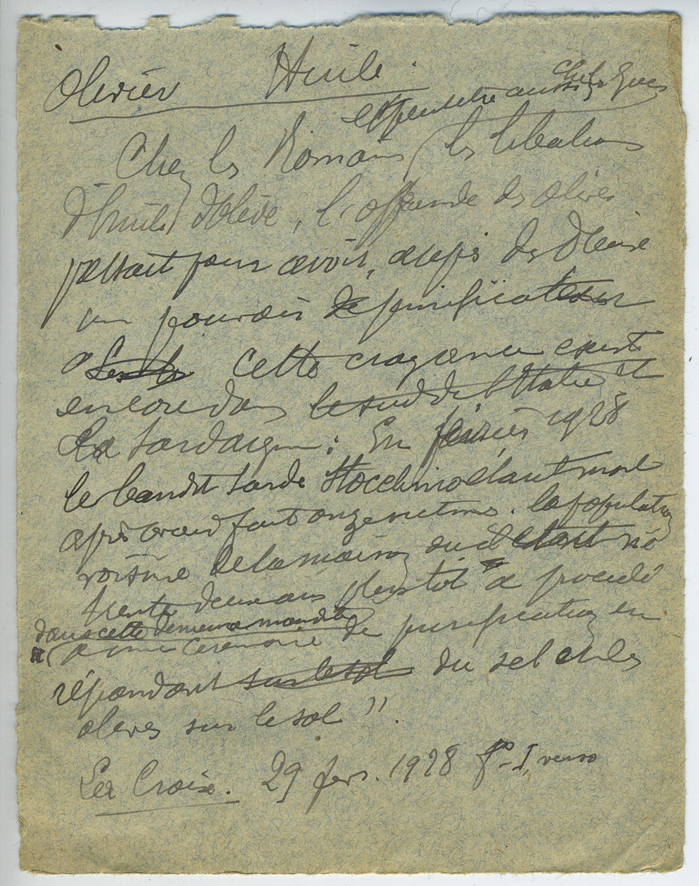 Olivier Huile.
et peut etre aussi chez
Chez les Romains les libations
d'huile d'olive, l'offrande des olives
passait pour avoir, auprès des Dieux
un pouvoir de purificateur
Cette croyance existe
encore dans le sud de l'Italie et
La Sardaigne : En février 1928
le bandit sarde Stocchino étant mort
après avoir fait onze victimes. la population
voisine de la maison où il était né
trente deux ans plus tôt a procédé
dans cette demeure maudite
a une cérémonie de purification en
répandant sur le sol du sel et des
olives sur le sol ".
La Croix. 29 fevr. 1928 fº I, verso